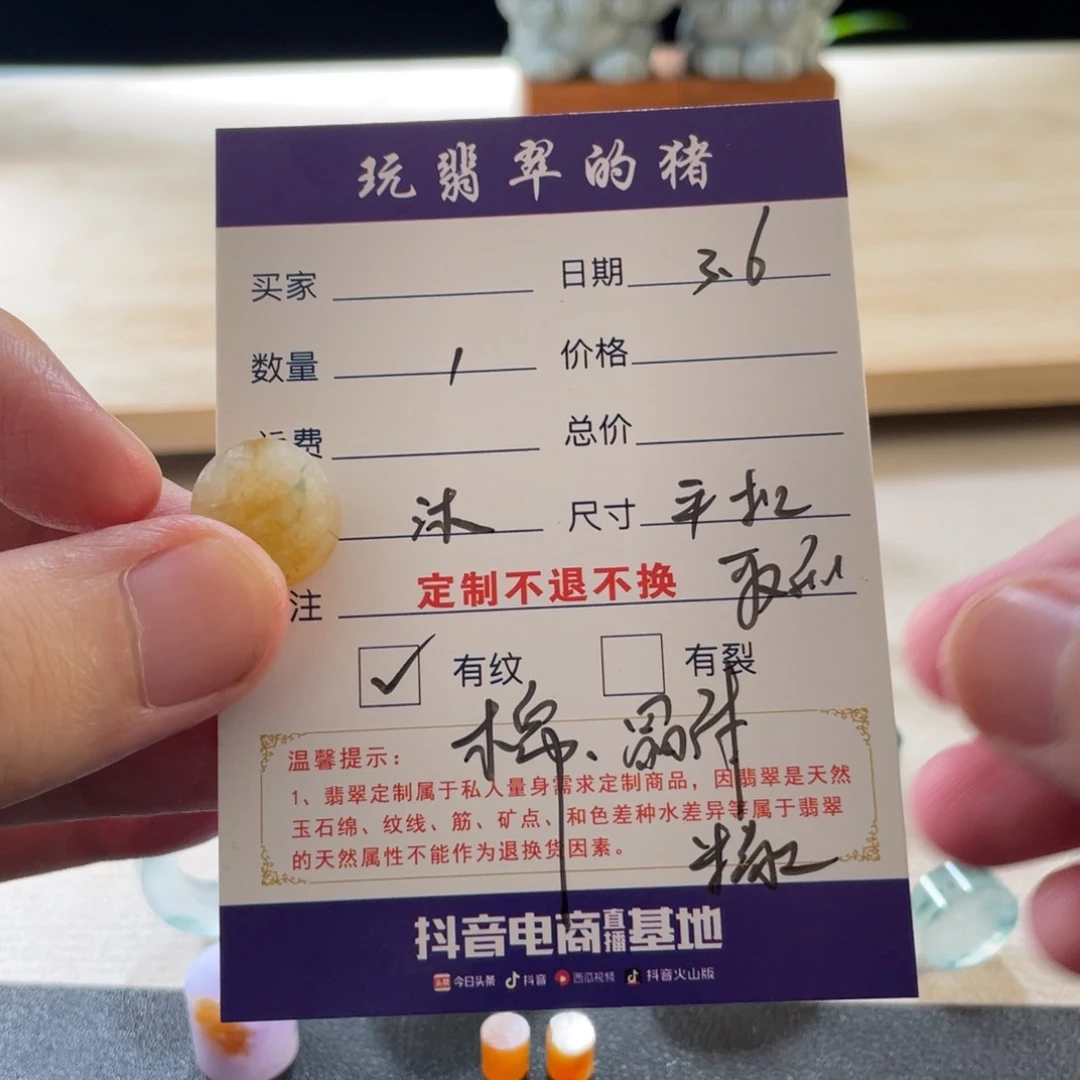 玩翡翠的猪
买家 日期 3.6
数量 1 价格
费 总价
尺寸 平扣
注 定制不退不换
✓ 有纹 有裂
棉、
温馨提示：
1、翡翠定制属于私人量身需求定制商品，因翡翠是天然
玉石绵、纹线、筋、矿点、和色差种水差异等属于翡翠
的天然属性不能作为退换货因素。
抖音电商直播基地
头条 今日头条 抖音 西瓜视频 抖音火山版